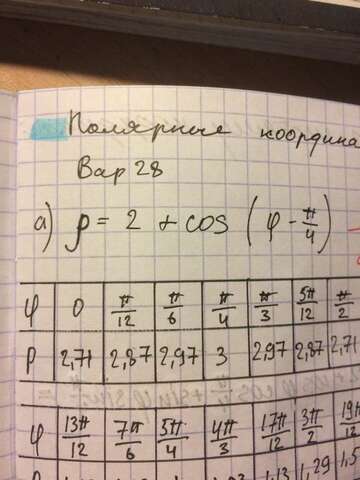 Полярные координа
Вар 28
а) ρ = 2 + cos (φ - π/4)
φ 0 π/12 π/6 π/4 π/3 5π/12 π/2
ρ 2,71 2,87 2,97 3 2,97 2,87 2,71
φ 13π/12 7π/6 5π/4 4π/3 17π/12 3π/2 19π/12
1,13 1,29 1,5